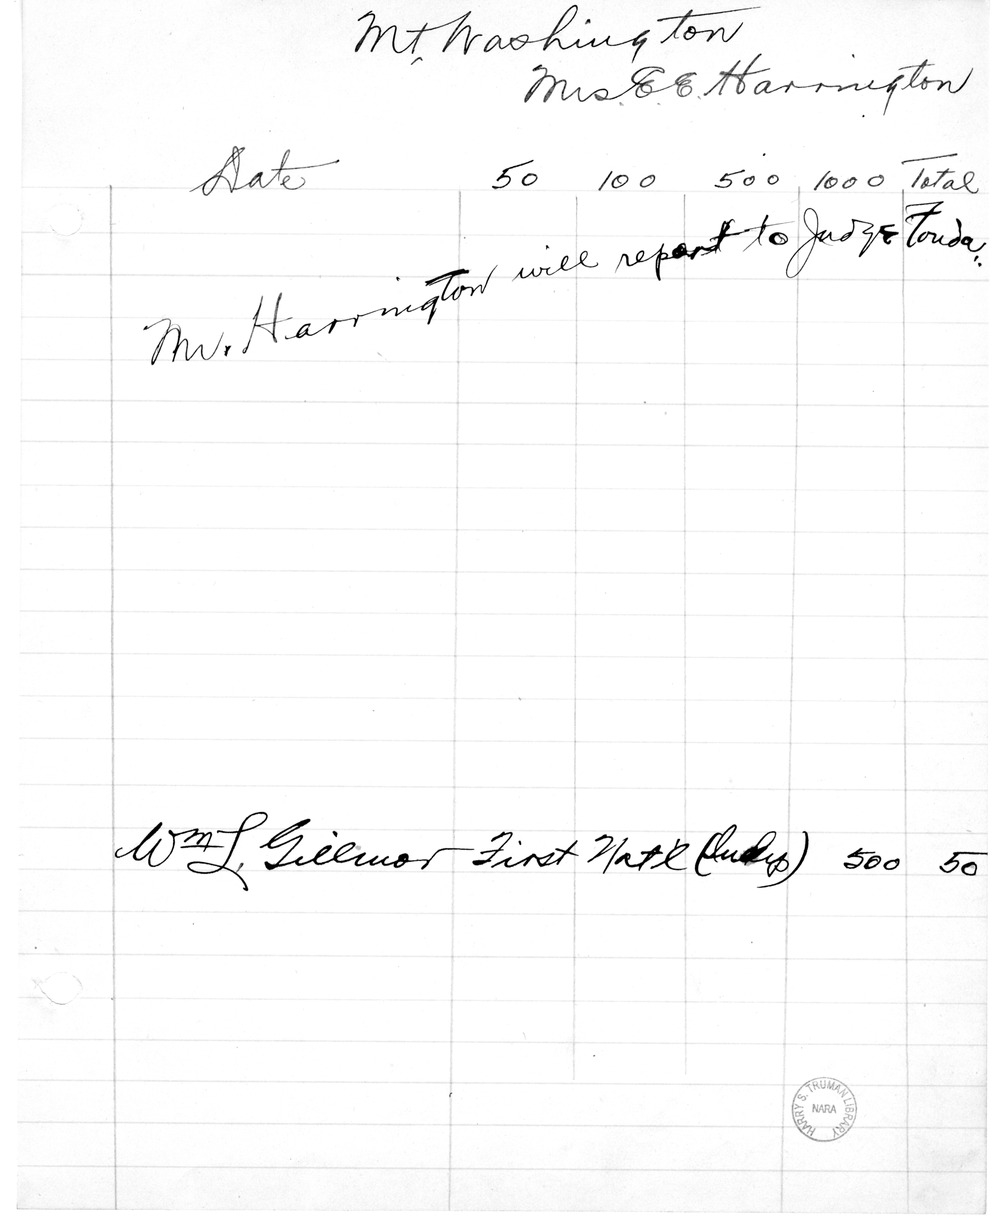 Mt. Washington
Mrs. E E. Harrington
Date 50 100 500 1000 Total
Mr. Harrington will report to Judge Fonda.
Wm L. Gillmor First Nat'l (Indep) 500 50
HARRY S. TRUMAN LIBRARY
NARA